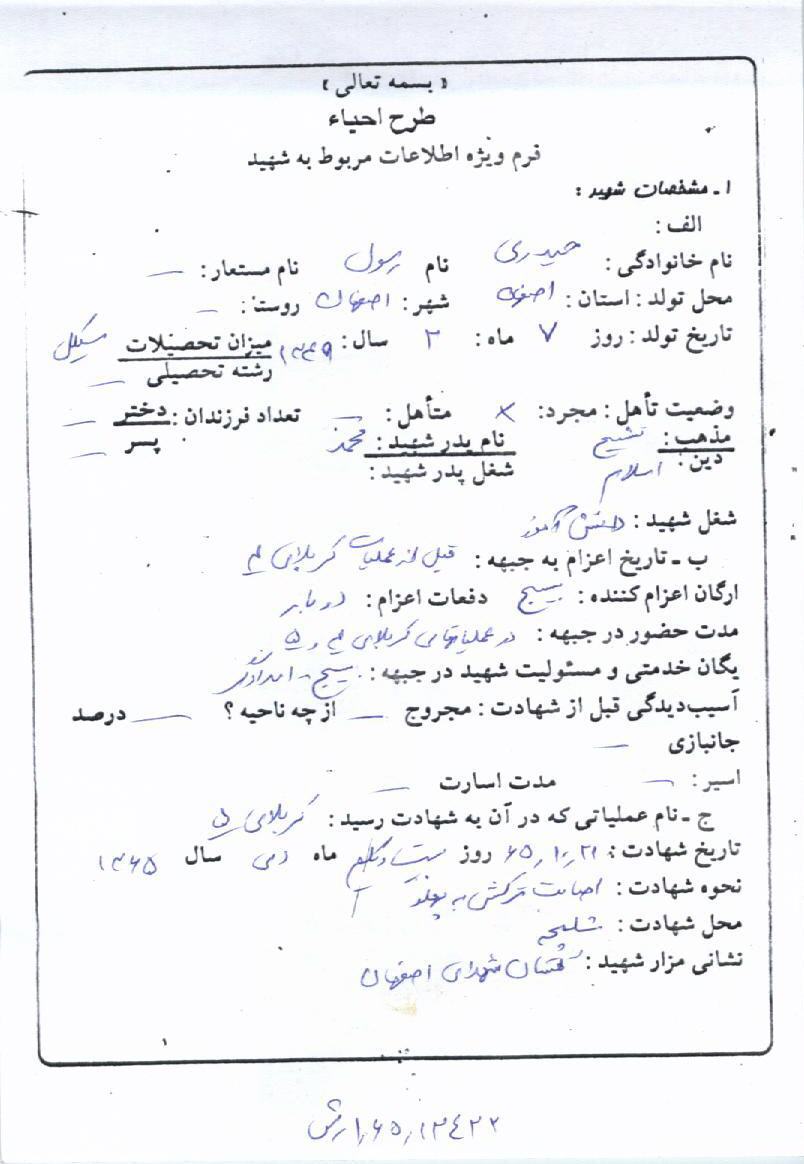 « بسمه تعالی »
طرح احیاء
فرم ویژه اطلاعات مربوط به شهید
۱ ـ مشخصات شهید :
الف :
نام خانوادگی : حیدری نام رسول نام مستعار : —
محل تولد : استان : اصفهان شهر : اصفهان روستا : —
تاریخ تولد : روز ۷ ماه : ۲ سال : ۱۳۴۹ میزان تحصیلات سیکل
رشته تحصیلی —
وضعیت تأهل : مجرد : × متأهل : — تعداد فرزندان : دختر —
پسر —
مذهب : تشیع نام پدر شهید : محمد
دین : اسلام شغل پدر شهید :
شغل شهید : دانش آموز
ب ـ تاریخ اعزام به جبهه : قبل از عملیات کربلای ۴
ارگان اعزام کننده : بسیج دفعات اعزام : دو بار
مدت حضور در جبهه : در عملیاتهای کربلای ۴ و ۵
یگان خدمتی و مسئولیت شهید در جبهه : بسیج - امدادگر
آسیب‌دیدگی قبل از شهادت : مجروح — از چه ناحیه ؟ — درصد
جانبازی —
اسیر : — مدت اسارت —
ج ـ نام عملیاتی که در آن به شهادت رسید : کربلای ۵
تاریخ شهادت : ۶۵٫۱۰٫۲۱ روز بیست و یکم ماه دی سال ۱۳۶۵
نحوه شهادت : اصابت ترکش به پهلو
محل شهادت : شلمچه
نشانی مزار شهید : گلستان شهدای اصفهان
۱